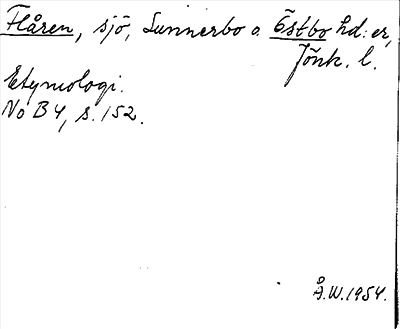 Flåren, sjö, Sunnerbo o. Östbo hd:er,
Jönk. l.
Etymologi.
No B 4, s. 152.
Å.W. 1954.